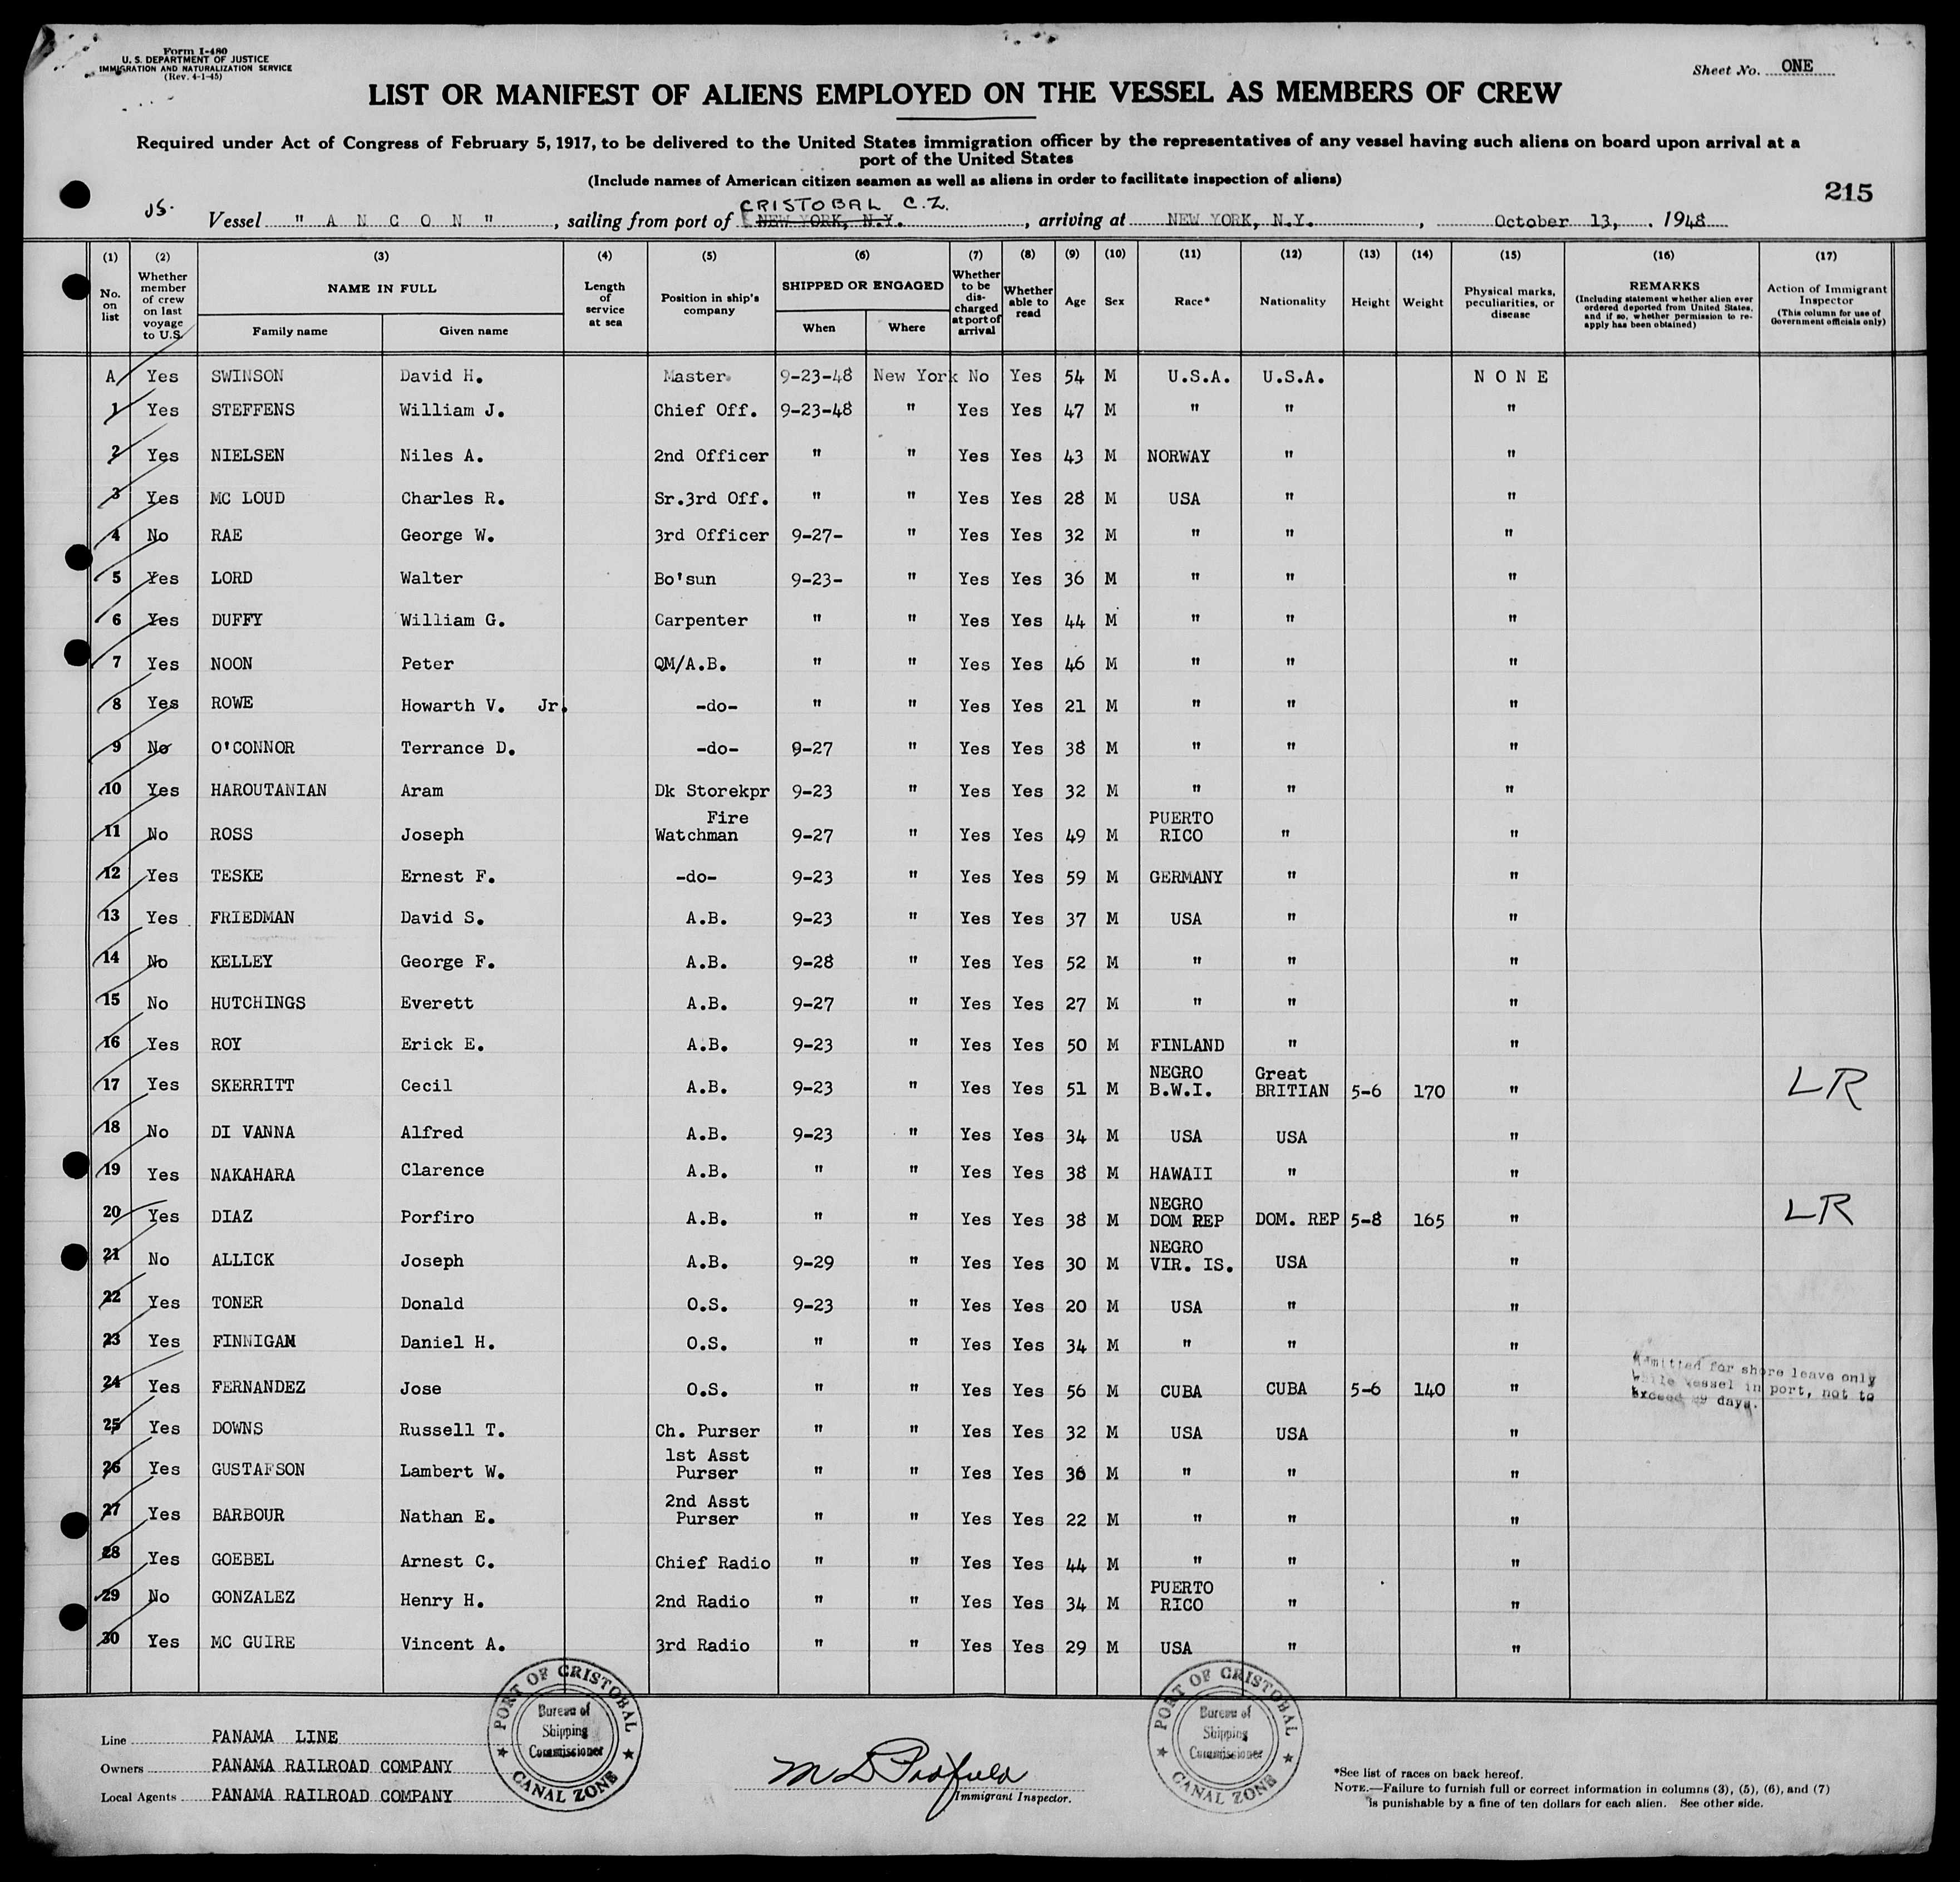 Form I-480
U. S. DEPARTMENT OF JUSTICE
IMMIGRATION AND NATURALIZATION SERVICE
(Rev. 4-1-45)
Sheet No. ONE
LIST OR MANIFEST OF ALIENS EMPLOYED ON THE VESSEL AS MEMBERS OF CREW
Required under Act of Congress of February 5, 1917, to be delivered to the United States immigration officer by the representatives of any vessel having such aliens on board upon arrival at a
port of the United States
(Include names of American citizen seamen as well as aliens in order to facilitate inspection of aliens)
215
CRISTOBAL C.Z.
Vessel " A N C O N " , sailing from port of NEW YORK, N.Y. , arriving at NEW YORK, N.Y. , October 13, , 1948
(1) (2) (3) (4) (5) (6) (7) (8) (9) (10) (11) (12) (13) (14) (15) (16) (17)
No. on list
Whether member of crew on last voyage to U.S.
NAME IN FULL
Family name
Given name
Length of service at sea
Position in ship's company
SHIPPED OR ENGAGED
When
Where
Whether to be discharged at port of arrival
Whether able to read
Age
Sex
Race*
Nationality
Height
Weight
Physical marks, peculiarities, or disease
REMARKS
(Including statement whether alien ever ordered deported from United States, and if so, whether permission to reapply has been obtained)
Action of Immigrant Inspector
(This column for use of Government officials only)
A Yes SWINSON David H. Master 9-23-48 New York No Yes 54 M U.S.A. U.S.A. N O N E
1 Yes STEFFENS William J. Chief Off. 9-23-48 " Yes Yes 47 M " " "
2 Yes NIELSEN Niles A. 2nd Officer " " Yes Yes 43 M NORWAY " "
3 Yes MC LOUD Charles R. Sr.3rd Off. " " Yes Yes 28 M USA " "
4 No RAE George W. 3rd Officer 9-27- " Yes Yes 32 M " " "
5 Yes LORD Walter Bo'sun 9-23- " Yes Yes 36 M " " "
6 Yes DUFFY William G. Carpenter " " Yes Yes 44 M " " "
7 Yes NOON Peter QM/A.B. " " Yes Yes 46 M " " "
8 Yes ROWE Howarth V. Jr. -do- " " Yes Yes 21 M " " "
9 No O'CONNOR Terrance D. -do- 9-27 " Yes Yes 38 M " " "
10 Yes HAROUTANIAN Aram Dk Storekpr 9-23 " Yes Yes 32 M " " "
11 No ROSS Joseph Fire Watchman 9-27 " Yes Yes 49 M PUERTO RICO " "
12 Yes TESKE Ernest F. -do- 9-23 " Yes Yes 59 M GERMANY " "
13 Yes FRIEDMAN David S. A.B. 9-23 " Yes Yes 37 M USA " "
14 No KELLEY George F. A.B. 9-28 " Yes Yes 52 M " " "
15 No HUTCHINGS Everett A.B. 9-27 " Yes Yes 27 M " " "
16 Yes ROY Erick E. A.B. 9-23 " Yes Yes 50 M FINLAND " "
17 Yes SKERRITT Cecil A.B. 9-23 " Yes Yes 51 M NEGRO B.W.I. Great BRITIAN 5-6 170 " LR
18 No DI VANNA Alfred A.B. 9-23 " Yes Yes 34 M USA USA "
19 Yes NAKAHARA Clarence A.B. " " Yes Yes 38 M HAWAII " "
20 Yes DIAZ Porfiro A.B. " " Yes Yes 38 M NEGRO DOM REP DOM. REP 5-8 165 " LR
21 No ALLICK Joseph A.B. 9-29 " Yes Yes 30 M NEGRO VIR. IS. USA "
22 Yes TONER Donald O.S. 9-23 " Yes Yes 20 M USA " "
23 Yes FINNIGAN Daniel H. O.S. " " Yes Yes 34 M " " "
24 Yes FERNANDEZ Jose O.S. " " Yes Yes 56 M CUBA CUBA 5-6 140 "
Admitted for shore leave only
while vessel in port, not to
exceed 29 days.
25 Yes DOWNS Russell T. Ch. Purser " " Yes Yes 32 M USA USA "
26 Yes GUSTAFSON Lambert W. 1st Asst Purser " " Yes Yes 36 M " " "
27 Yes BARBOUR Nathan E. 2nd Asst Purser " " Yes Yes 22 M " " "
28 Yes GOEBEL Arnest C. Chief Radio " " Yes Yes 44 M " " "
29 No GONZALEZ Henry H. 2nd Radio " " Yes Yes 34 M PUERTO RICO " "
30 Yes MC GUIRE Vincent A. 3rd Radio " " Yes Yes 29 M USA " "
PORT OF CRISTOBAL
Bureau of
Shipping
Commissioner
CANAL ZONE
PORT OF CRISTOBAL
Bureau of
Shipping
Commissioner
CANAL ZONE
Line PANAMA LINE
Owners PANAMA RAILROAD COMPANY
Local Agents PANAMA RAILROAD COMPANY
Immigrant Inspector.
*See list of races on back hereof.
NOTE.—Failure to furnish full or correct information in columns (3), (5), (6), and (7)
is punishable by a fine of ten dollars for each alien. See other side.